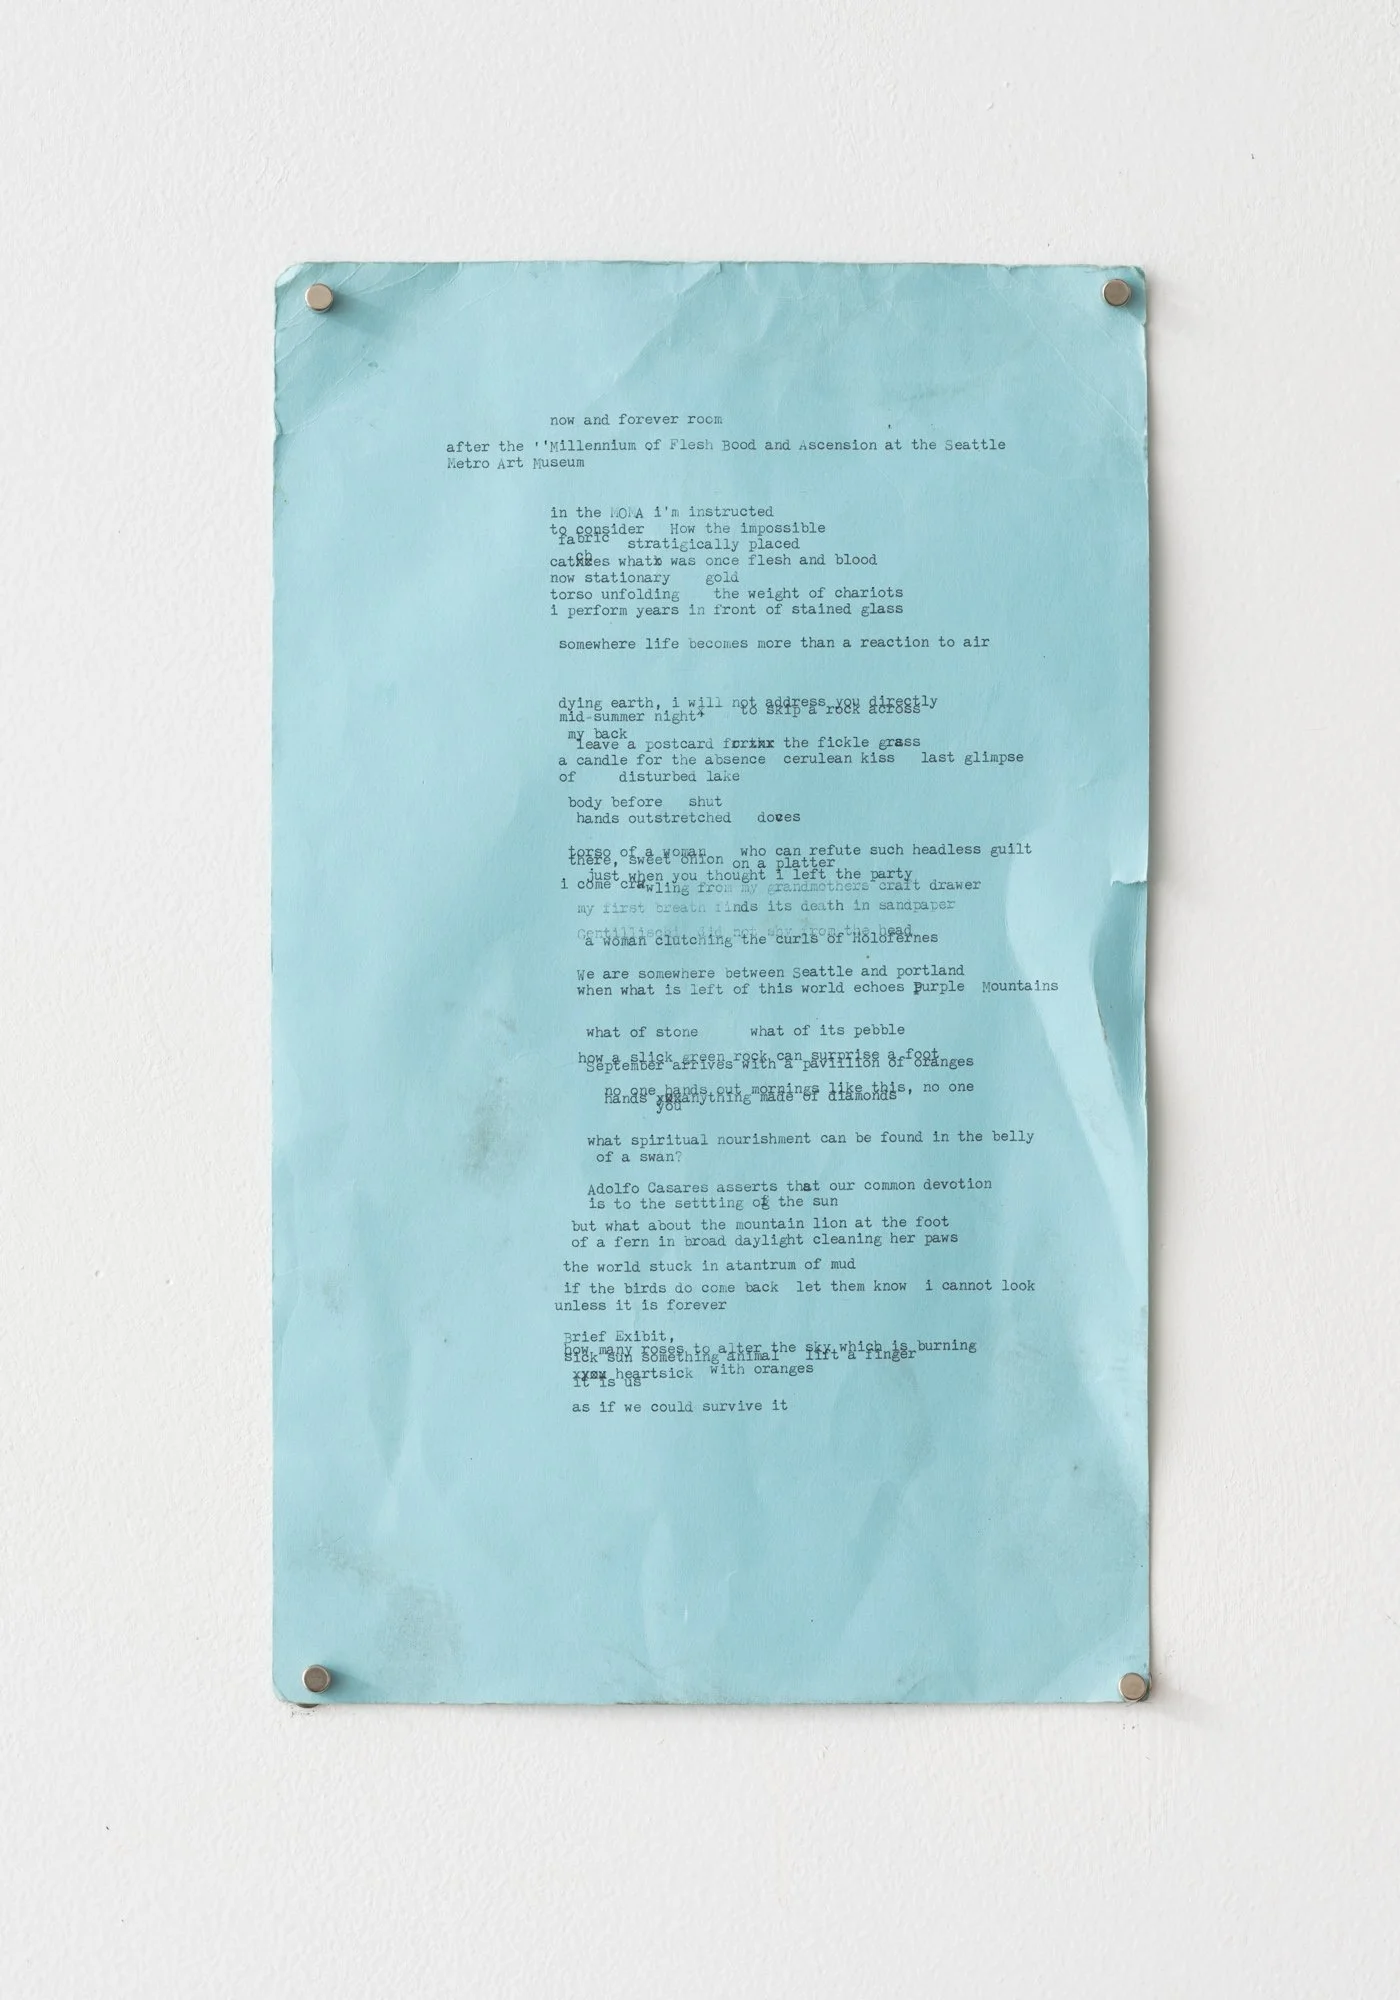 now and forever room
after the ''Millennium of Flesh Bood and Ascension at the Seattle
Metro Art Museum
in the MOMA i'm instructed
to consider How the impossible
fabric stratigically placed
catches what was once flesh and blood
now stationary gold
torso unfolding the weight of chariots
i perform years in front of stained glass
somewhere life becomes more than a reaction to air
dying earth, i will not address you directly
mid-summer night to skip a rock across
my back
leave a postcard for the fickle grass
a candle for the absence cerulean kiss last glimpse
of disturbed lake
body before shut
hands outstretched doves
torso of a woman who can refute such headless guilt
there, sweet onion on a platter
just when you thought i left the party
i come crawling from my grandmothers craft drawer
my first breath finds its death in sandpaper
did not shy from the head
a woman clutching the curls of Holofernes
We are somewhere between Seattle and portland
when what is left of this world echoes Purple Mountains
what of stone what of its pebble
how a slick green rock can surprise a foot
September arrives with a pavillion of oranges
no one hands out mornings like this, no one
hands anything made of diamonds
you
what spiritual nourishment can be found in the belly
of a swan?
Adolfo Casares asserts that our common devotion
is to the settting of the sun
but what about the mountain lion at the foot
of a fern in broad daylight cleaning her paws
the world stuck in atantrum of mud
if the birds do come back let them know i cannot look
unless it is forever
Brief Exibit,
how many roses to alter the sky which is burning
sick sun something animal lift a finger
heartsick with oranges
it is us
as if we could survive it